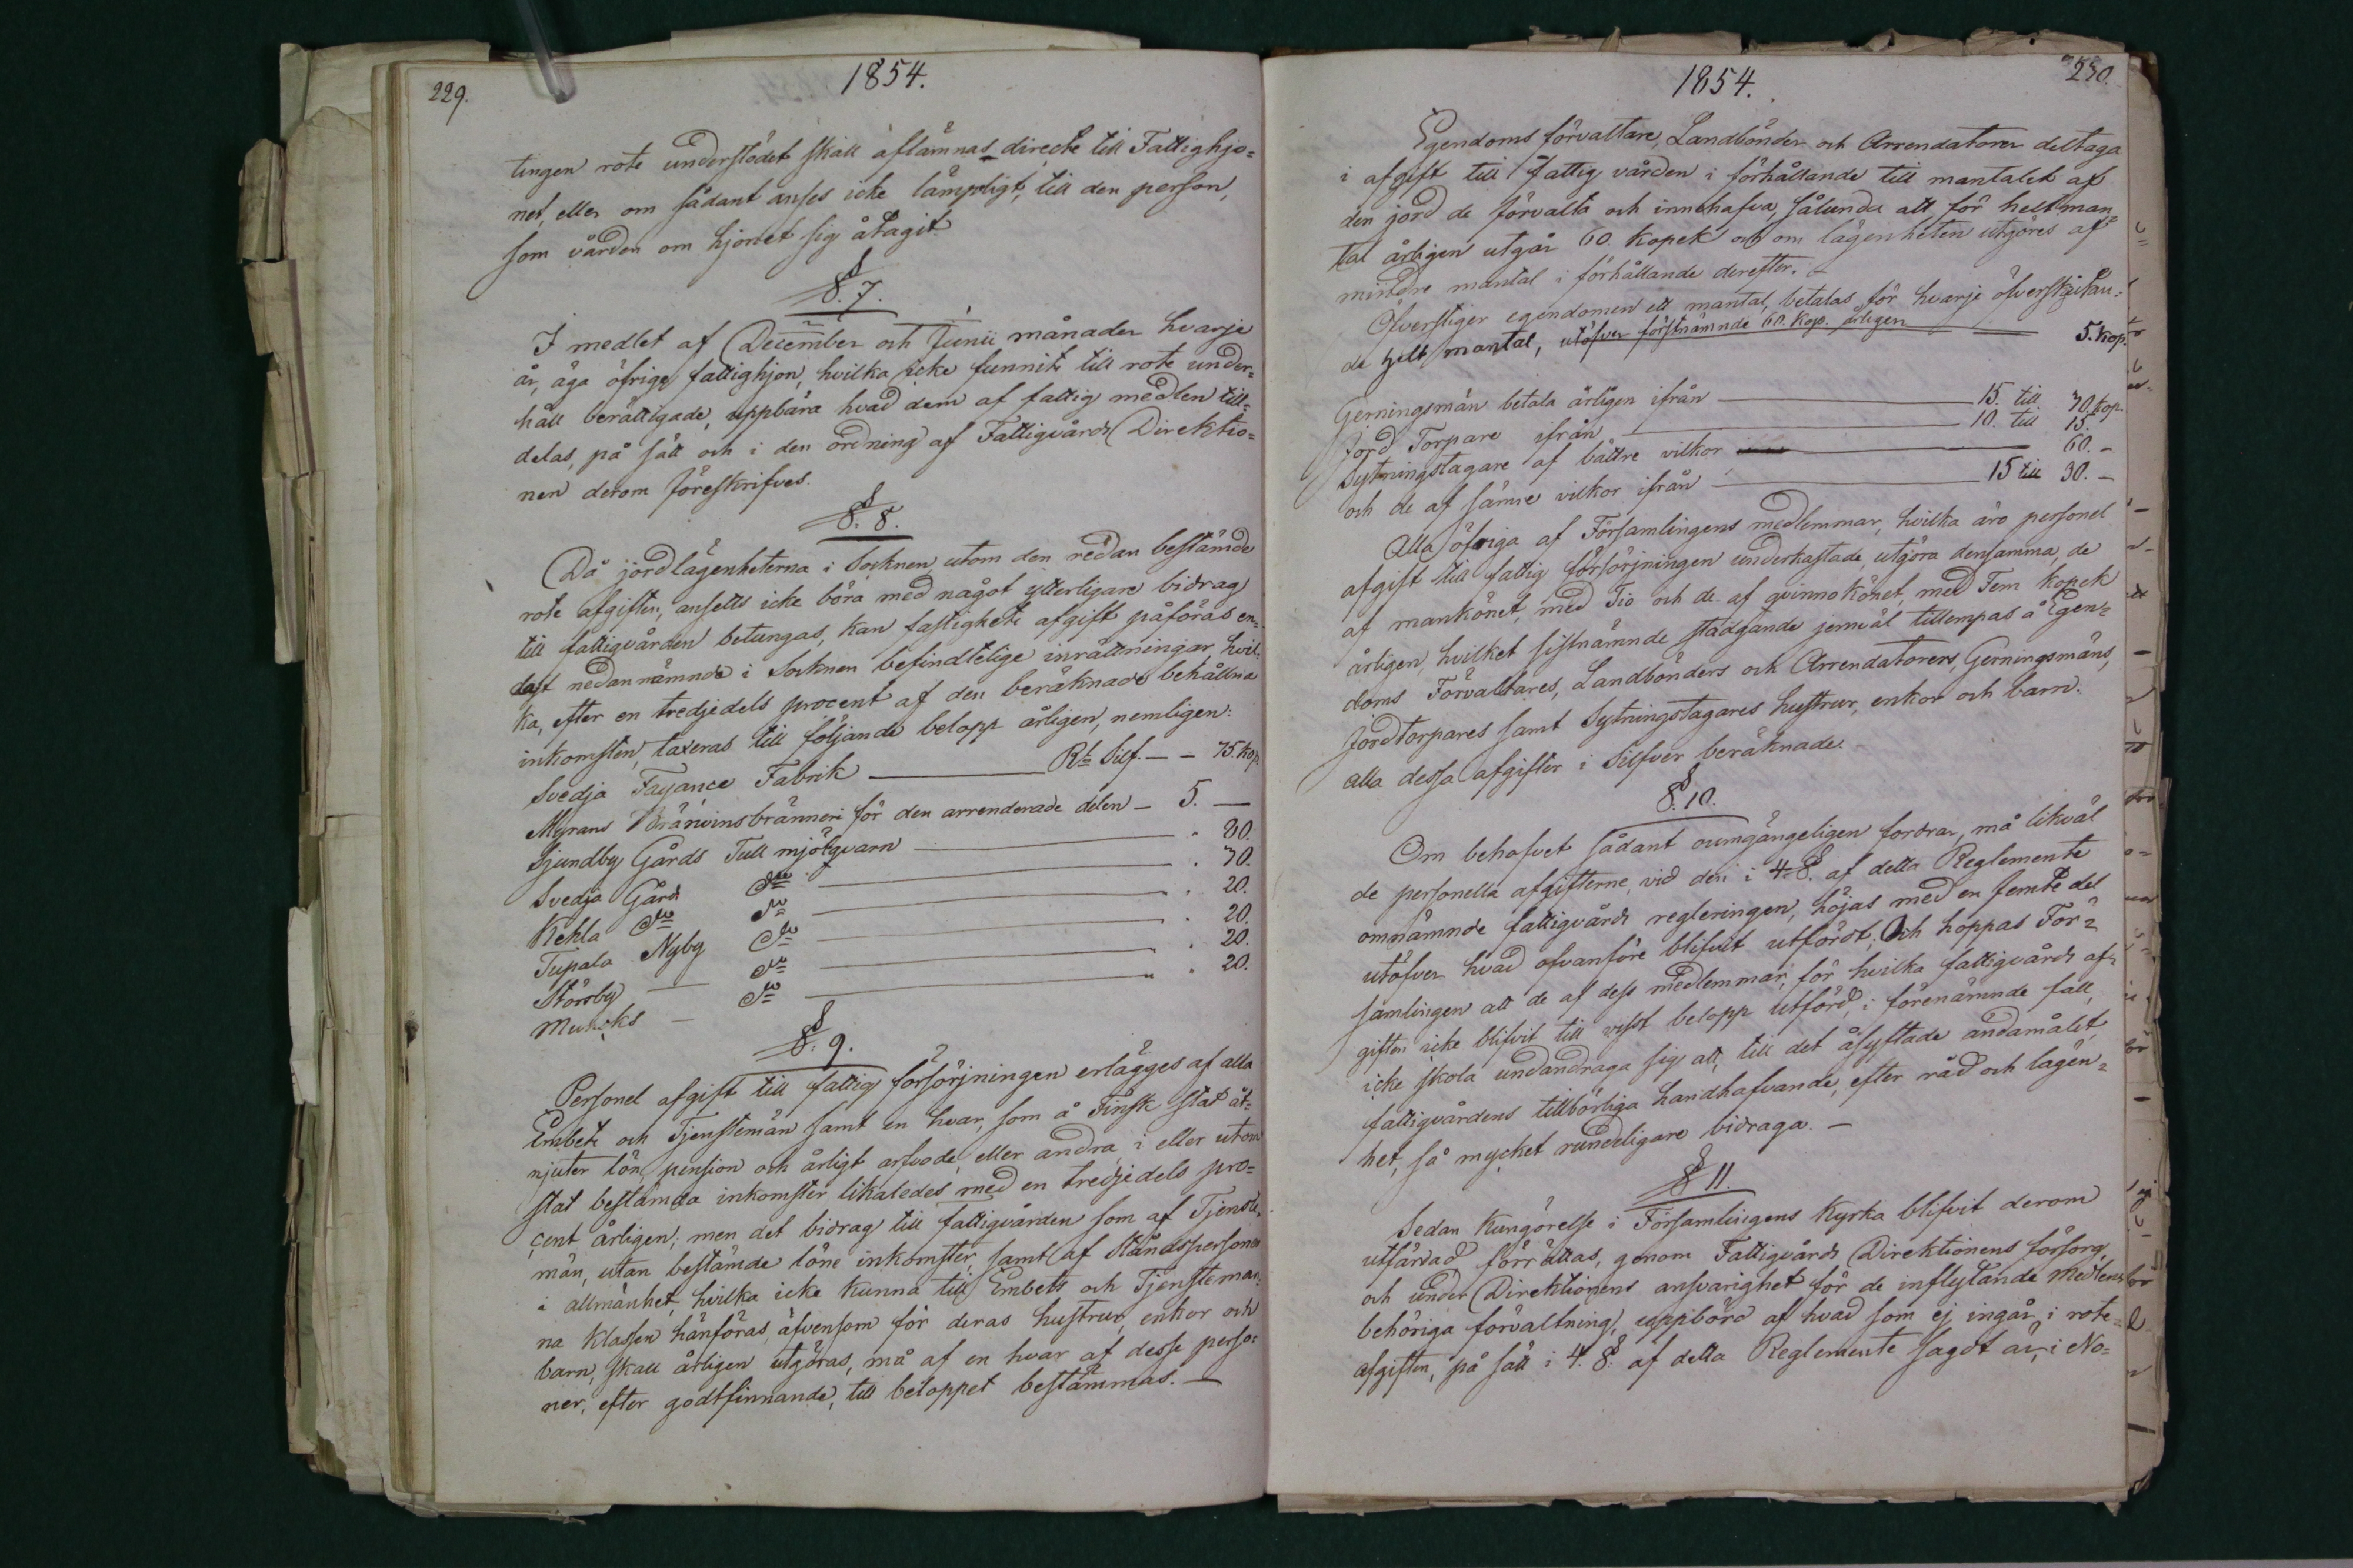 229.
1854.
tingen rote understödet skall aflämnas directe till Fattighjo=
net, eller om sådant anses icke lämpligt, till den person,
som vården om hjonet sig åtagit.
§. 7.
I medlet af December och Junii månader hvarje
år, äga öfrige fattighjon, hvilka icke funnits till rote under=
håll berättigade, uppbära hvad dem af fattig medlen till=
delas, på sätt och i den ordning af Fattigvårds Direktio=
nen derom föreskrifves.
§. 8.
Då jordlägenheterna i Socknen, utom den redan bestämde
rote afgiften, ansetts icke böra med något ytterligare bidrag
till fattigvården betungas, kan fastighets afgift påföras en=
dast nedannämnde i Socknen befindtelige inrättningar, hvil=
ka, efter en tredjedels procent af den beräknade behållna
inkomsten, taxeras till följande belopp årligen, nemligen:
Svedja Fayance Fabrik — Rb Silf. — — 75. kop.
Myrans Bränvinsbränneri för den arrenderade delen — 5. —
Sjundby Gårds Tull mjölqvarn — " 80.
Svedja Gårds do — " 30.
Kehla do do — " 20.
Tupala Nyby do — " 20.
Störsby — do — " 20.
Munks — do — " 20.
§. 9.
Personel afgift till fattig försörjningen erlägges af alla
Embets och Tjenstemän samt en hvar, som å Finsk stat åt=
njuter lön, pension och årligt arfvode eller andra, i eller utom
stat bestämda inkomster likaledes med en tredjedels pro=
cent årligen; men det bidrag till fattigvården som af Tjenste=
män, utan bestämde löne inkomster, samt af Ståndspersoner
i allmänhet, hvilka icke kunna till Embets och Tjensteman=
na klassen hänföras, äfvensom för deras hustrur, enkor och
barn, skall årligen utgöras, må af en hvar af desse perso=
ner, efter godtfinnande, till beloppet bestämmas. —
1854.
230.
Egendoms förvaltare, Landbönder och Arrendatorer deltaga
i afgift till Fattig vården i förhållande till mantalet af
den jord de förvalta och innehafva, sålunda att för helt man=
tal årligen utgår 60. kopek och om lägenheten utgöres af
mindre mantal i förhållande derefter. —
Öfverstiger egendomen ett mantal, betalas för hvarje öfverskjutan=
de helt mantal, utöfver förstnämnde 60. kop. årligen — 5. kop.
Gerningsmän betala årligen ifrån — 15. till 30. kop.
Jord Torpare ifrån — 10. till 15.
Sytningstagare af bättre vilkor — 60. —
och de af sämre vilkor ifrån — 15 till 30. —
Alla öfriga af Församlingens medlemmar, hvilka äro personel
afgift till fattig försörjningen underkastade, utgöra densamma, de
af mankönet, med Tio och de af qvinnokönet, med Fem kopek
årligen, hvilket sistnämnde stadgande jemväl tillempas å Egen=
doms Förvaltares, Landbönders och Arrendatorers, Gerningsmäns,
Jordtorpares samt Sytningstagares hustrur, enkor och barn.
alla dessa afgifter i Silfver beräknade. —
§. 10.
Om behofvet sådant oumgängeligen fordrar, må likväl
de personella afgifterne, vid den i 4. §. af detta Reglemente
omnämnde fattigvårds regleringen, höjas med en femte del
utöfver hvad ofvanföre blifvit utfördt; Och hoppas För=
samlingen att de af dess medlemmar, för hvilka fattigvårds af=
giften icke blifvit till visst belopp utförd, i förenämnde fall,
icke skola undandraga sig att, till det åsyftade ändamålet,
fattigvårdens tillbörliga handhafvande, efter råd och lägen=
het, så mycket rundeligare bidraga. —
§ 11.
Sedan Kungörelse i Församlingens Kyrka blifvit derom
utfärdad förrättas, genom Fattigvårds Direktionens försorg,
och under Direktionens ansvarighet för de inflytande medlens
behöriga förvaltning, uppbörd af hvad som ej ingår i rote=
afgiften, på sätt i 4. §. af detta Reglemente sagdt är, i No=